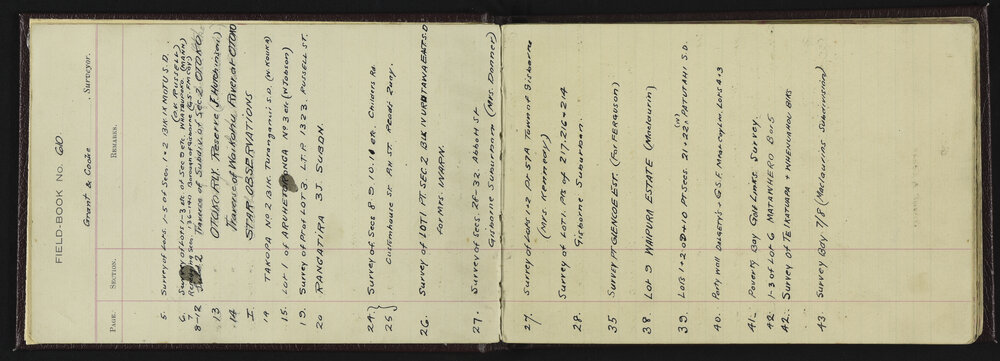 FIELD-BOOK No. 610
Grant & Cooke Surveyor.
PAGE. SECTION. REMARKS.
5. Survey of Lots. 1-5 of Secn. 1+2 Blk IX MOTU S.D.
(O.K. RUSSELL)
6. Survey of Lots 1-3 etc of Sec D etc. WHATAUPOKO (MANN)
7 Re Secn 136-140 Borough of Gisborne (G.S. PINCOY)
8-12 Traverse of Subdiv. of Sec. 2 OTOKO.
13 OTOKO RLY. Reserve (J. Hutchinson)
14 Traverse of Waikohu River at OTOKO
I. STAR OBSERVATIONS
14 TAKOPA No 2 Blk. Turanganui S.D. (W. KOUKA)
15. Lot 1 of No 3 etc (N. Tobson)
19. Survey of Pt of LOT 3. L.T.P. 1323. RUSSELL ST.
20 RANGATIRA 3J. SUBDN.
24.} Survey of Secs 8 D 10. 10 etc. Childers Rd
25 } Customhouse St. Awn ST. Peddi Domy.
26. Survey of LOT 1 PT SEC. 2 BLK IV UROTAWA EAST. S.D.
For MRS. IVAPN.
27. Survey of Secs. 26-32. Abbott St
Gisborne Suburban (Mrs. Donner)
27. Survey of Lots 1+2 Pt 57A Town of Gisborne
(Mrs Kennedy)
28. Survey of LOT 1. Pts of 217. 216 + 214
Gisborne Suburban.
35 Survey PT GLENCOE EST. (For FERGUSON)
38. Lot 9 WAIPURA ESTATE (Maclaurin)
39. Lots 1+2 of D+10 PT Secs. 21+22, (IV) PATUTAHI S.D.
40. Party Wall DALGETYS - C.G.S.F. Lots 4+3
41. Poverty Bay Golf Links. Survey.
42. 1-3 of Lot 6 MATAWHERO B or 5
42. Survey of TE IKATUAPA + WHENUAHOU BLKS
43 Survey Boy. 7/8 (Maclaurins Subdivision)